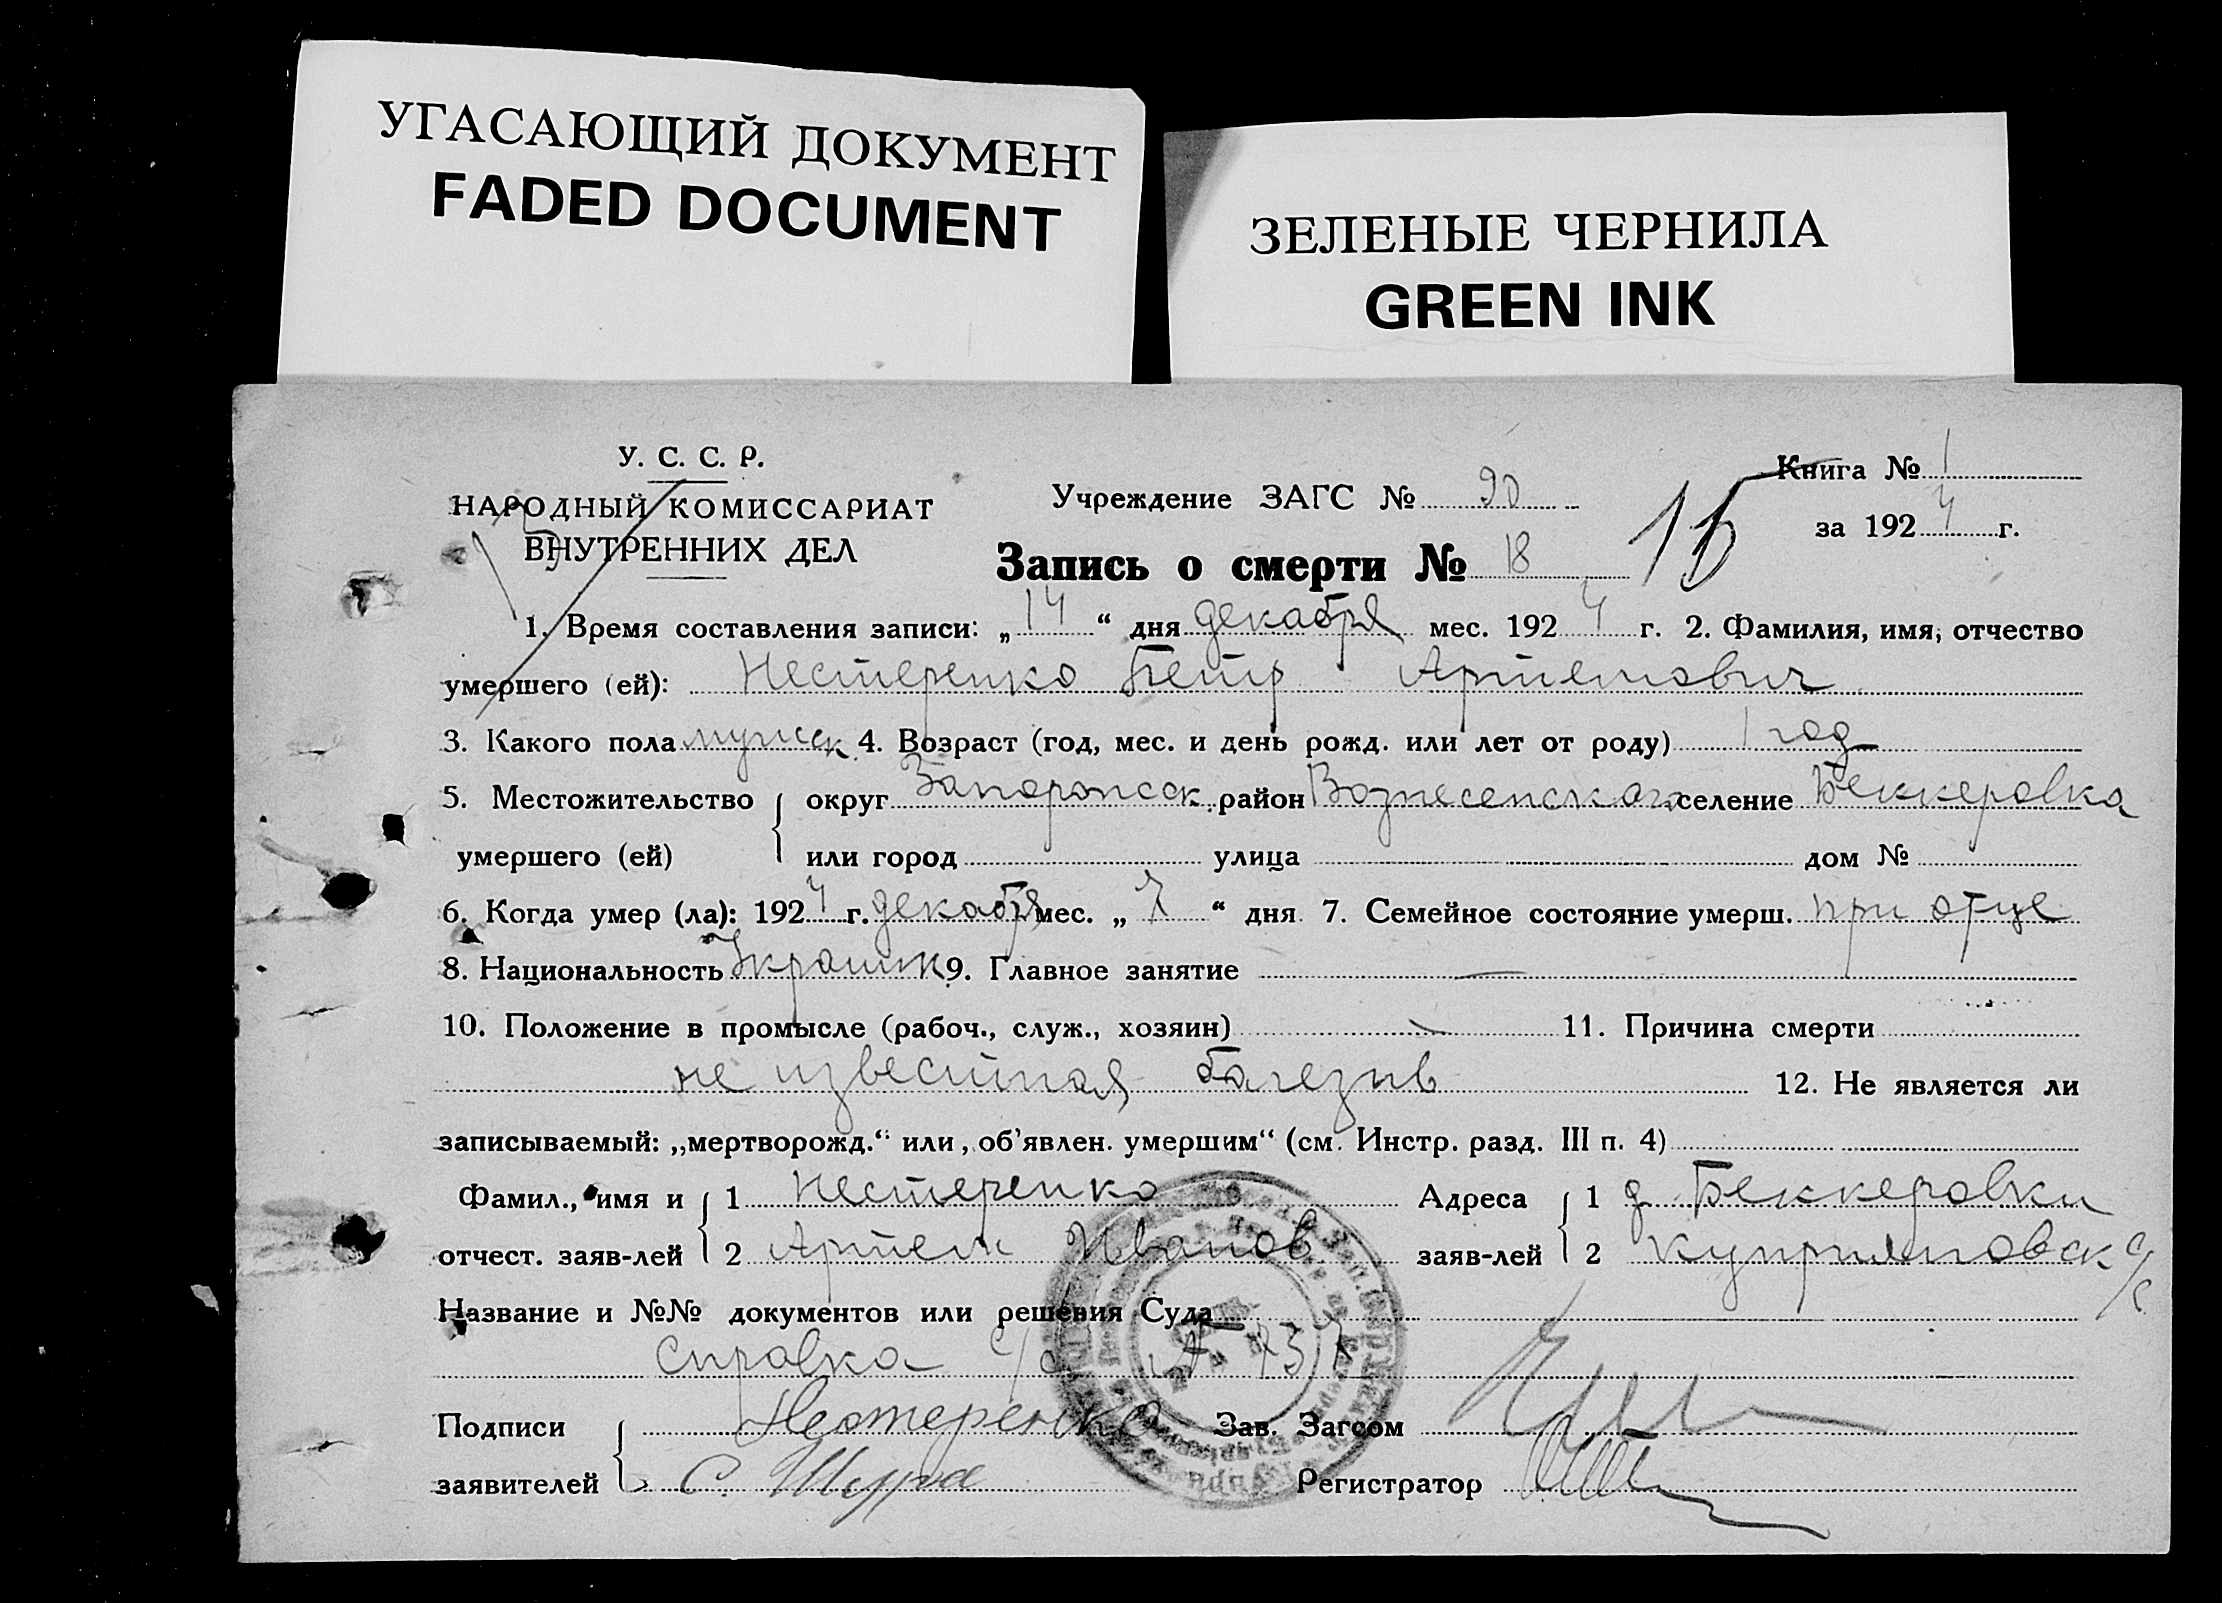 УГАСАЮЩИЙ ДОКУМЕНТ
FADED DOCUMENT
ЗЕЛЕНЫЕ ЧЕРНИЛА
GREEN INK
У. С. С. Р.
НАРОДНЫЙ КОМИССАРИАТ
ВНУТРЕННИХ ДЕЛ
Учреждение ЗАГС № 90
Книга № 1
за 1924 г.
Запись о смерти № 18
15
1. Время составления записи: „14“ дня декабря мес. 1924 г. 2. Фамилия, имя, отчество
умершего (ей): Нестеренко Петр Артемович
3. Какого пола мужск. 4. Возраст (год, мес. и день рожд. или лет от роду) 1 год
5. Местожительство округ Запорожск. район Вознесенского селение Беккеровка
умершего (ей) или город улица дом №
6. Когда умер (ла): 1924 г. декабря мес. „7“ дня 7. Семейное состояние умерш. при отце
8. Национальность Украин 9. Главное занятие —
10. Положение в промысле (рабоч., служ., хозяин) 11. Причина смерти
не известная болезнь 12. Не является ли
записываемый: „мертворожд.“ или „об’явлен. умершим“ (см. Инстр. разд. III п. 4)
Фамил., имя и 1 Нестеренко Адреса 1 д. Беккеровки
отчест. заяв-лей 2 Артем Иванов заяв-лей 2 Куприяновск с/с
Название и №№ документов или решения Суда
справка с/с № 737
Подписи Нестеренко Зав. Загсом
заявителей С. Шура Регистратор